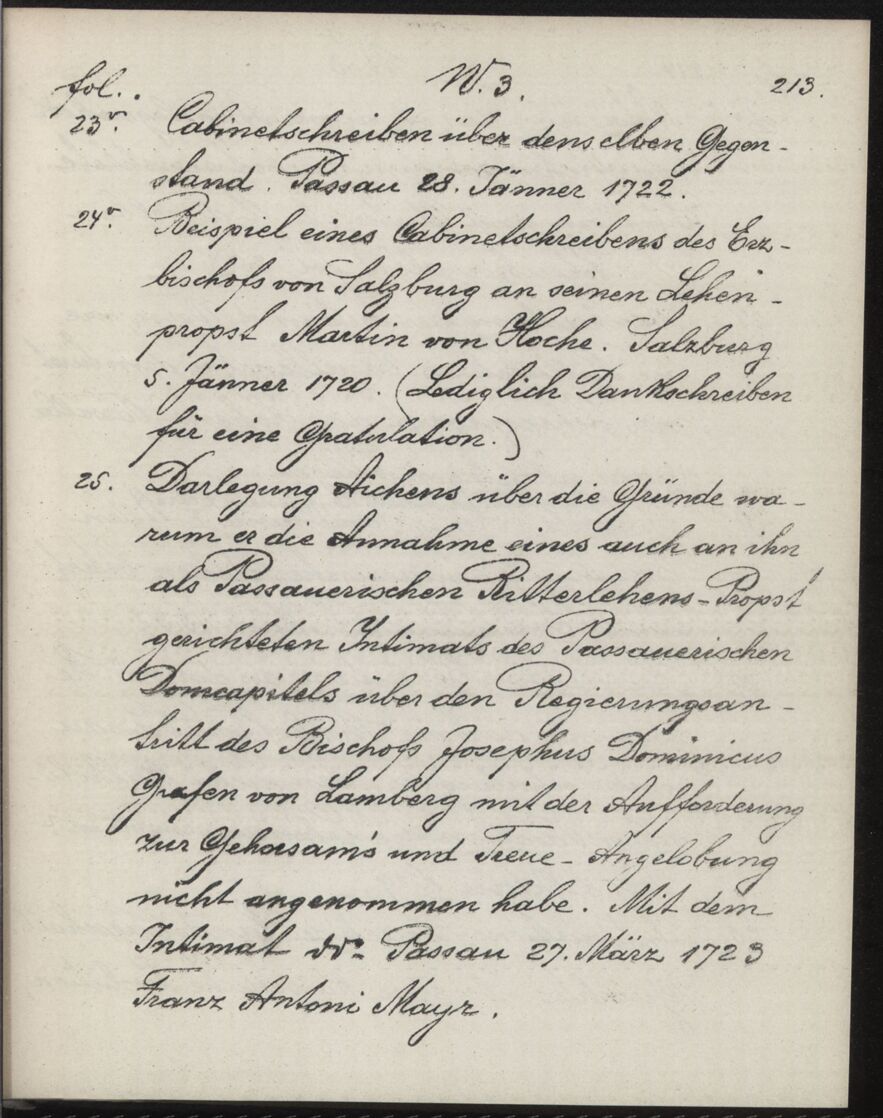 fol. W. 3. 213.
23v. Cabinetschreiben über denselben Gegen-
stand. Passau 28. Jänner 1722.
24v. Beispiel eines Cabinetschreibens des Erz-
bischofs von Salzburg an seinen Lehen-
propst Martin von Hoche. Salzburg
5. Jänner 1720. (Lediglich Dankschreiben
für eine Gratulation.)
25. Darlegung Aichens über die Gründe wa-
rum er die Annahme eines auch an ihn
als Passauerischen Ritterlehens-Propst
gerichteten Intimats des Passauerischen
Domcapitels über den Regierungsan-
tritt des Bischofs Josephus Dominicus
Grafen von Lamberg mit der Aufforderung
zur Gehorsam's und Treue-Angelobung
nicht angenommen habe. Mit dem
Intimat ddo. Passau 27. März 1723
Franz Antoni Mayr.